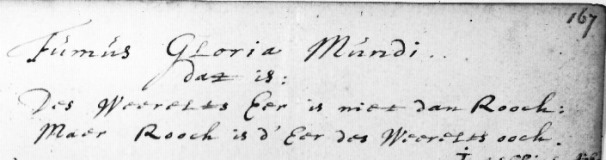 167
Fumús Gloria Múndi..
dat is:
Des Weerelts Eer is niet dan Rooch:
Maer Rooch is d'Eer des Weerelts ooch.